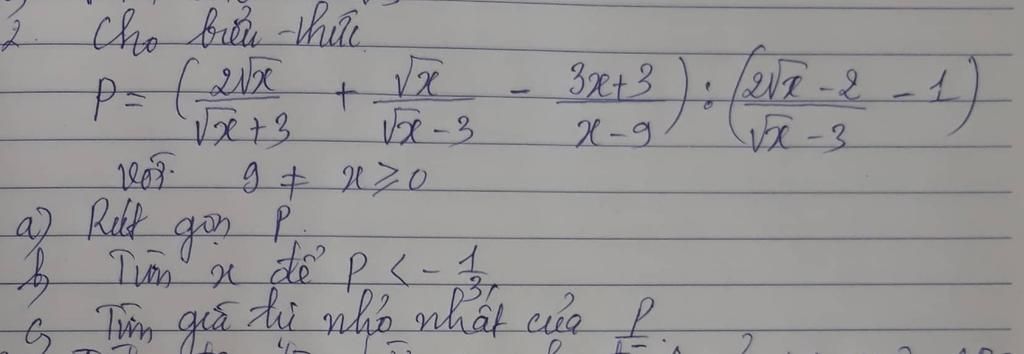 2. Cho biểu thức
P = (2√x/(√x+3) + √x/(√x-3) - (3x+3)/(x-9)) : ((2√x-2)/(√x-3) - 1)
với 9 ≠ x ≥ 0
a) Rút gọn P.
b) Tìm x để P < -1/3
c) Tìm giá trị nhỏ nhất của P.